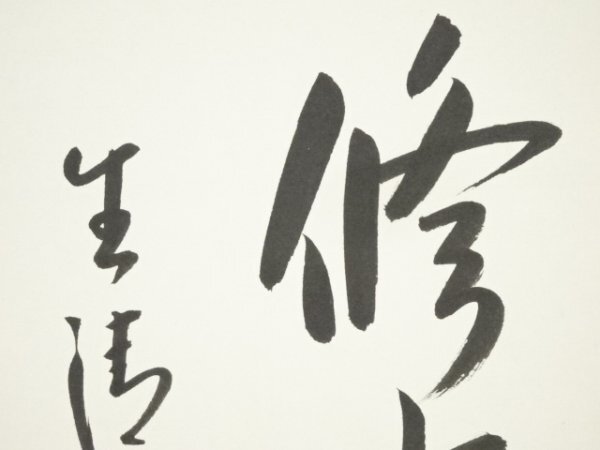 修
生清